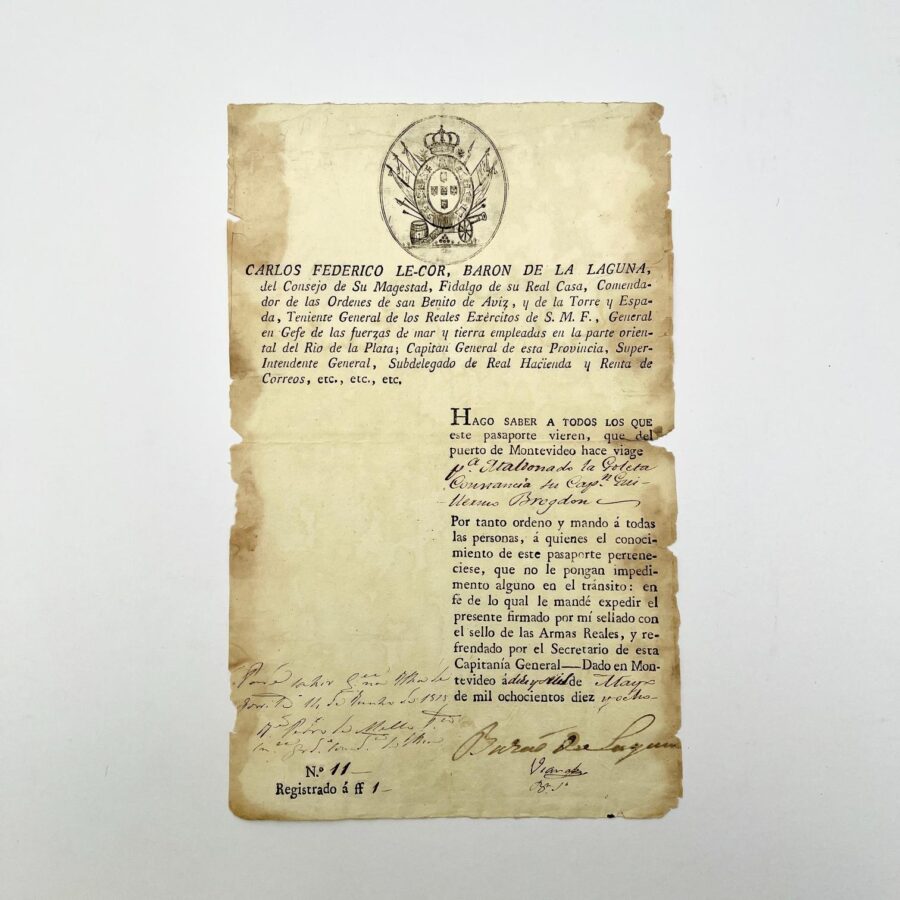 CARLOS FEDERICO LE-COR, BARON DE LA LAGUNA,
del Consejo de Su Magestad, Fidalgo de su Real Casa, Comenda-
dor de las Ordenes de san Benito de Aviz, y de la Torre y Espa-
da, Teniente General de los Reales Exércitos de S. M. F., General
en Gefe de las fuerzas de mar y tierra empleadas en la parte orien-
tal del Rio de la Plata; Capitan General de esta Provincia, Super-
Intendente General, Subdelegado de Real Hacienda y Renta de
Correos, etc., etc., etc.
HAGO SABER A TODOS LOS QUE
este pasaporte vieren, que del
puerto de Montevideo hace viage
pª Maldonado la Goleta
Constancia su Capn Gui-
llermo Brogdon
Por tanto ordeno y mando á todas
las personas, á quienes el conoci-
miento de este pasaporte pertene-
ciese, que no le pongan impedi-
mento alguno en el tránsito: en
fé de lo qual le mandé expedir el
presente firmado por mí sellado con
el sello de las Armas Reales, y re-
frendado por el Secretario de esta
Capitanía General—Dado en Mon-
tevideo á de Mayo
de mil ochocientos diez y ocho
14 de Junho de 1818
Pedro de Mello
Barão da Laguna
N.º 11
Registrado á ff 1